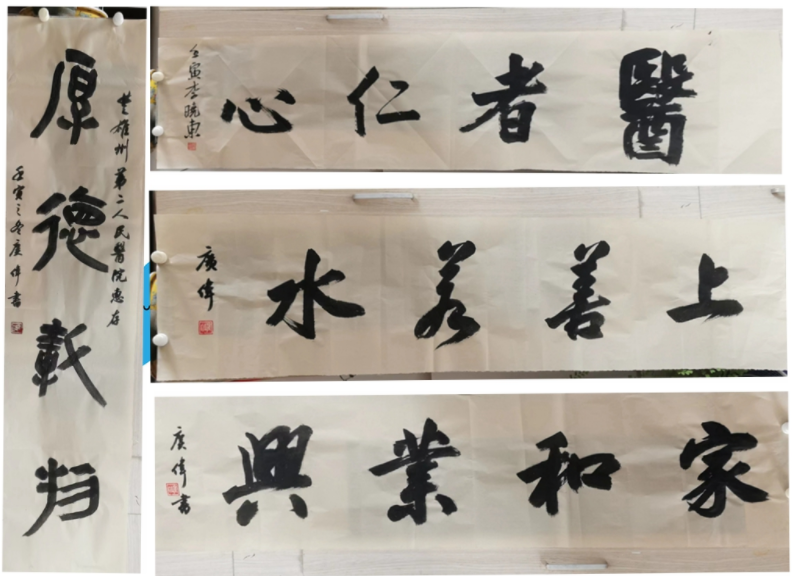 楚雄州第二人民醫院惠存
厚德載物
壬寅之冬廣偉書
醫者仁心
壬寅李曉東
上善若水
廣偉
家和業興
廣偉書